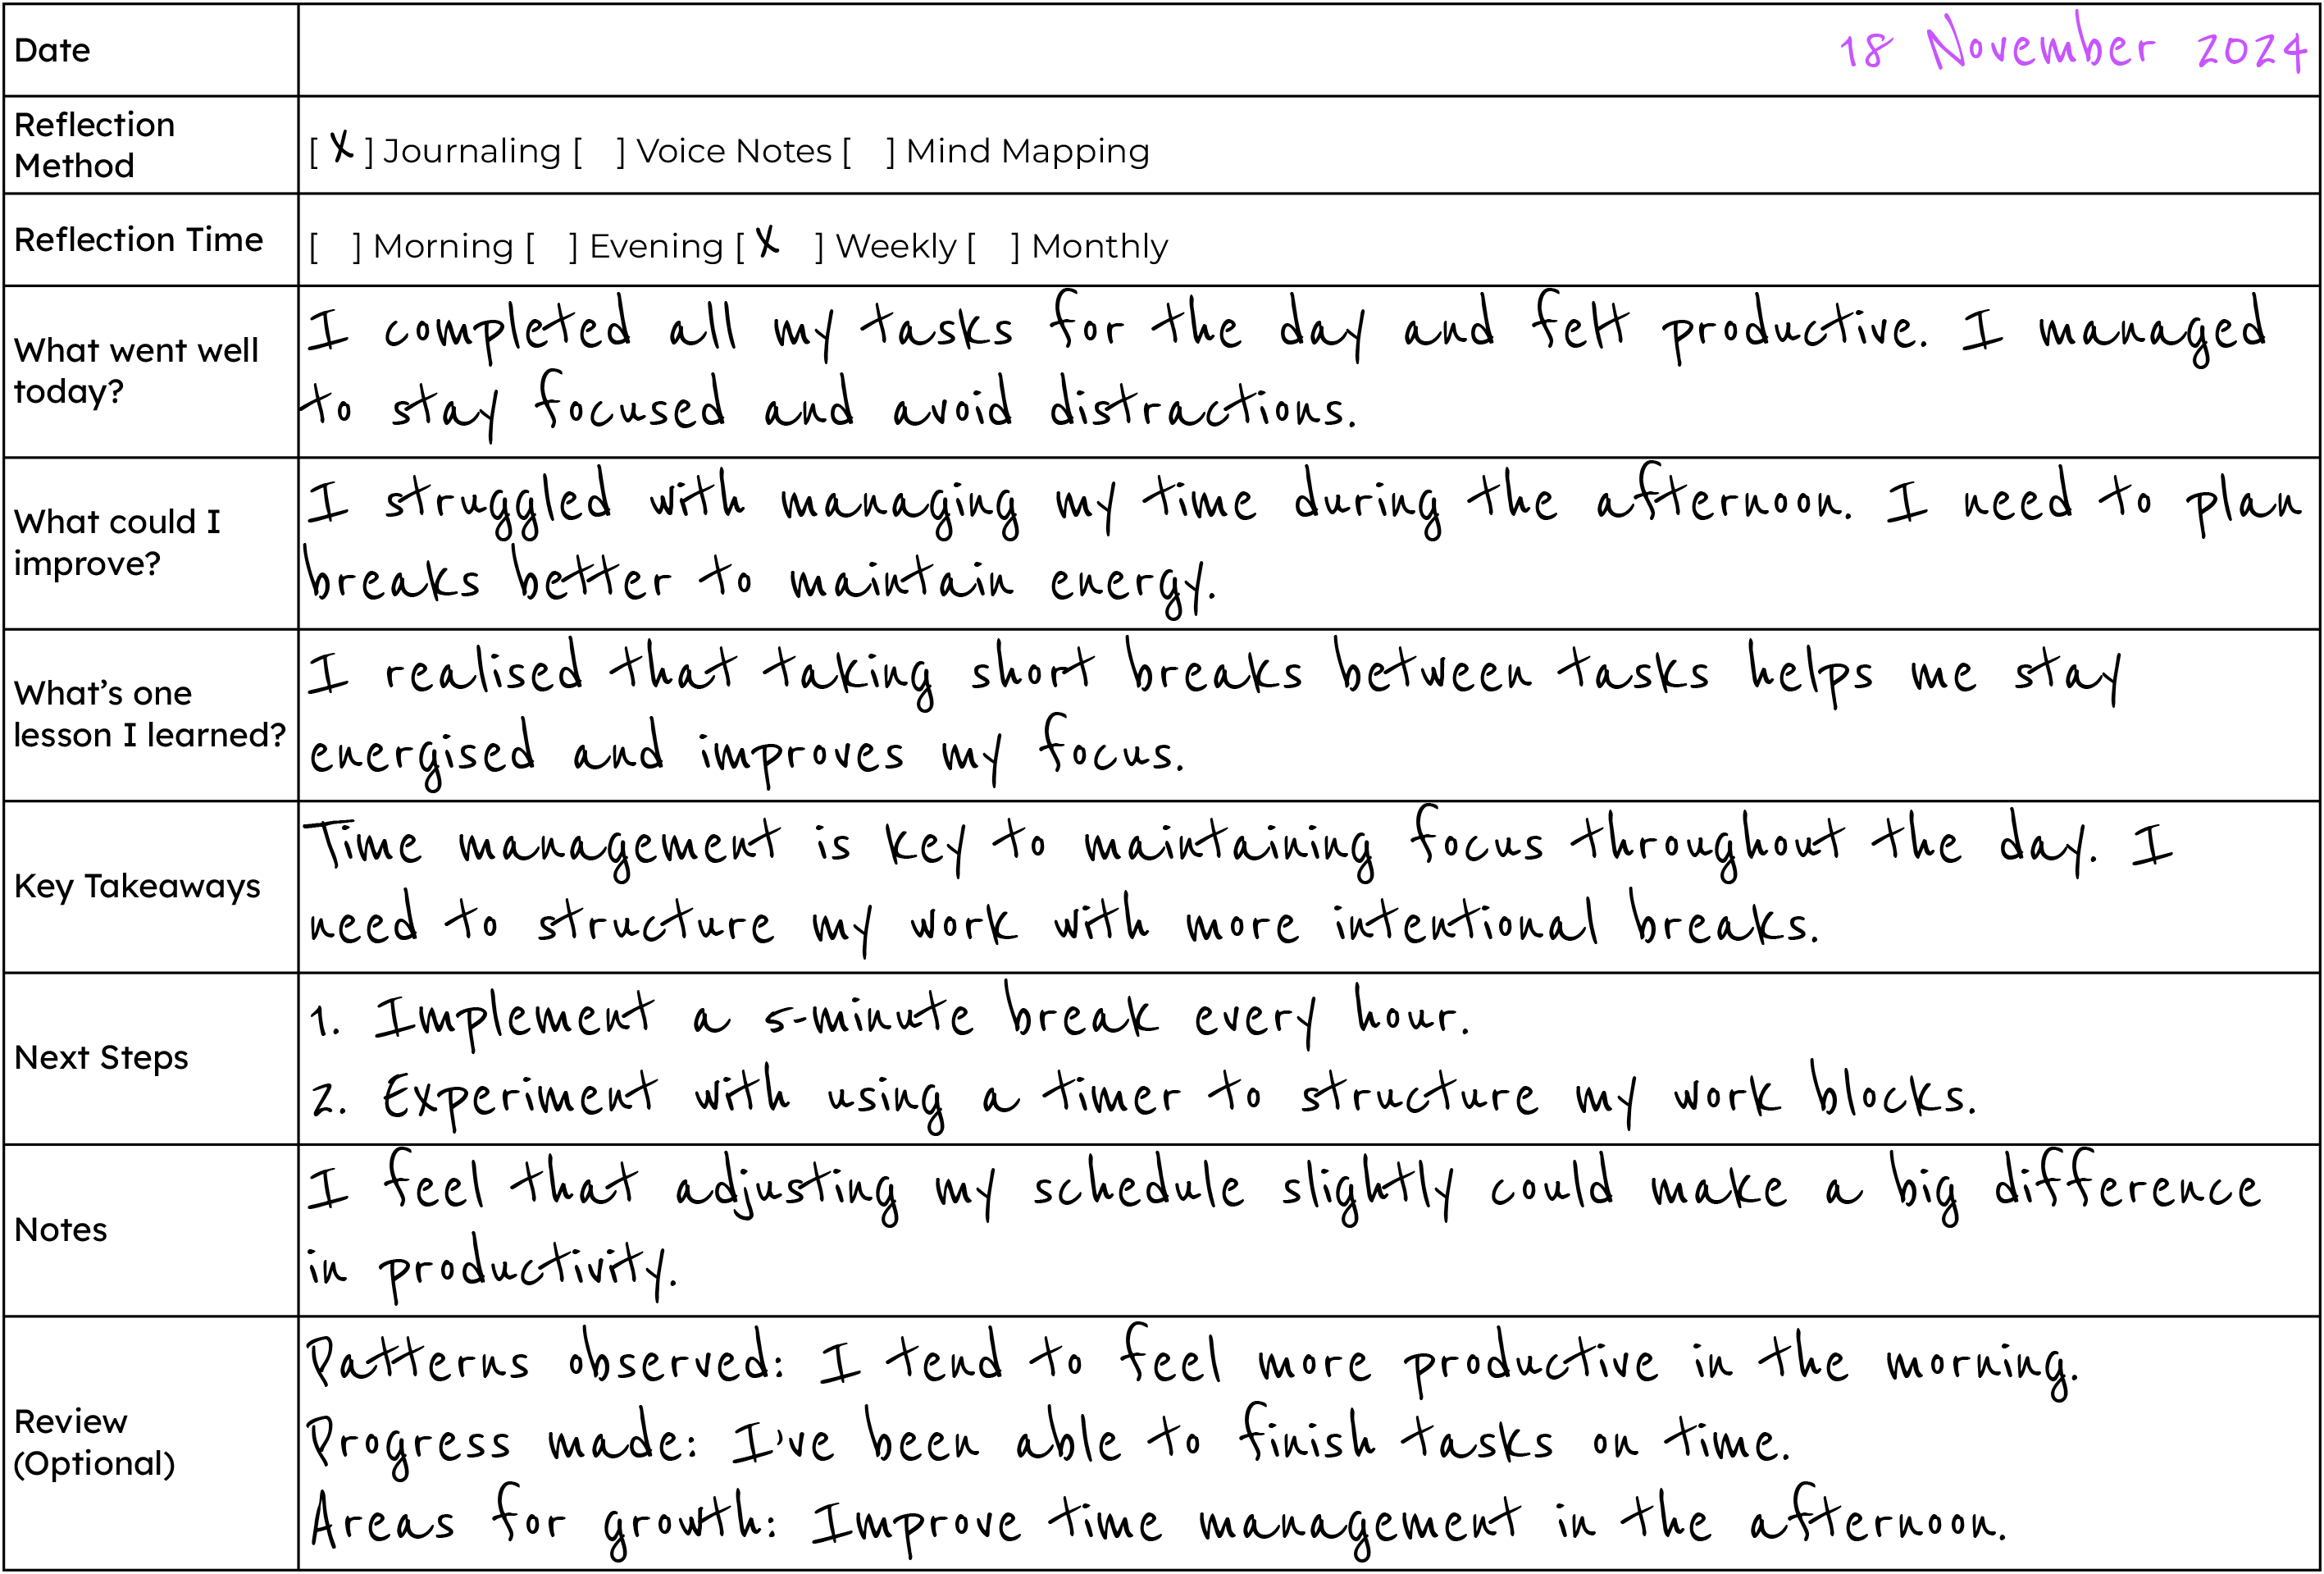 Date
18 November 2024
Reflection
Method
[ X ] Journaling [ ] Voice Notes [ ] Mind Mapping
Reflection Time
[ ] Morning [ ] Evening [ X ] Weekly [ ] Monthly
What went well
today?
I completed all my tasks for the day and felt productive. I managed
to stay focused and avoid distractions.
What could I
improve?
I struggled with managing my time during the afternoon. I need to plan
breaks better to maintain energy.
What's one
lesson I learned?
I realised that taking short breaks between tasks helps me stay
energised and improves my focus.
Key Takeaways
Time management is key to maintaining focus throughout the day. I
need to structure my work with more intentional breaks.
Next Steps
1. Implement a 5-minute break every hour.
2. Experiment with using a timer to structure my work blocks.
Notes
I feel that adjusting my schedule slightly could make a big difference
in productivity.
Review
(Optional)
Patterns observed: I tend to feel more productive in the morning.
Progress made: I've been able to finish tasks on time.
Areas for growth: Improve time management in the afternoon.